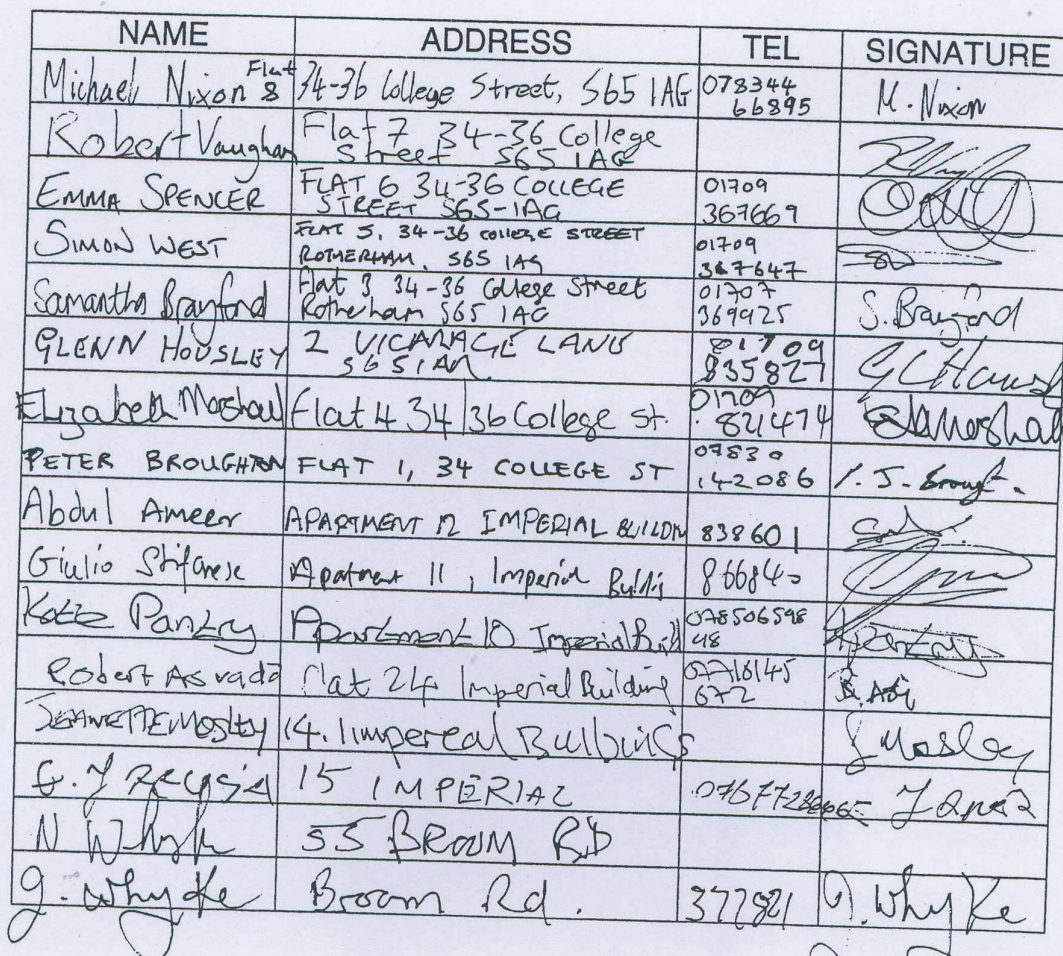 NAME ADDRESS TEL SIGNATURE
Michael Nixon Flat 8 34-36 College Street, S65 1AG 078344 66895 M. Nixon
Robert Vaughan Flat 7 34-36 College
Street S65 1AG
EMMA SPENCER FLAT 6 34-36 COLLEGE 01709
STREET S65-1AG 367669
SIMON WEST FLAT 5, 34-36 COLLEGE STREET 01709
ROTHERHAM, S65 1AG 367647
Samantha Brayford Flat 3 34-36 College Street 01707
Rotherham S65 1AG 369925 S. Brayford
GLENN HOUSLEY 2 VICARAGE LANE 01709
S65 1AN 835827
Elizabeth Marshall Flat 4 34/36 College St. 01709 821474
PETER BROUGHTON FLAT 1, 34 COLLEGE ST 07830 142086 P. J. Brough
Abdul Ameer APARTMENT 12 IMPERIAL BUILDIN 838601
Giulio Apartment 11, Imperial Buildig 866840
Pantry Apartment 10 Imperial Build 078506598 48
Robert Flat 24 Imperial Building 07716145 672
JEANETTE MOSLEY 14. Iimpereal J Mosley
15 IMPERIAL
N Whyke 55 BROOM RD
J. Whyke Broom Rd. 377821 J. Whyke